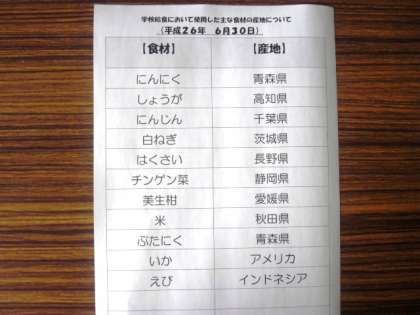 学校給食において使用した主な食材の産地について
(平成26年 6月30日)
【食材】 【産地】
にんにく 青森県
しょうが 高知県
にんじん 千葉県
白ねぎ 茨城県
はくさい 長野県
チンゲン菜 静岡県
美生柑 愛媛県
米 秋田県
ぶたにく 青森県
いか アメリカ
えび インドネシア